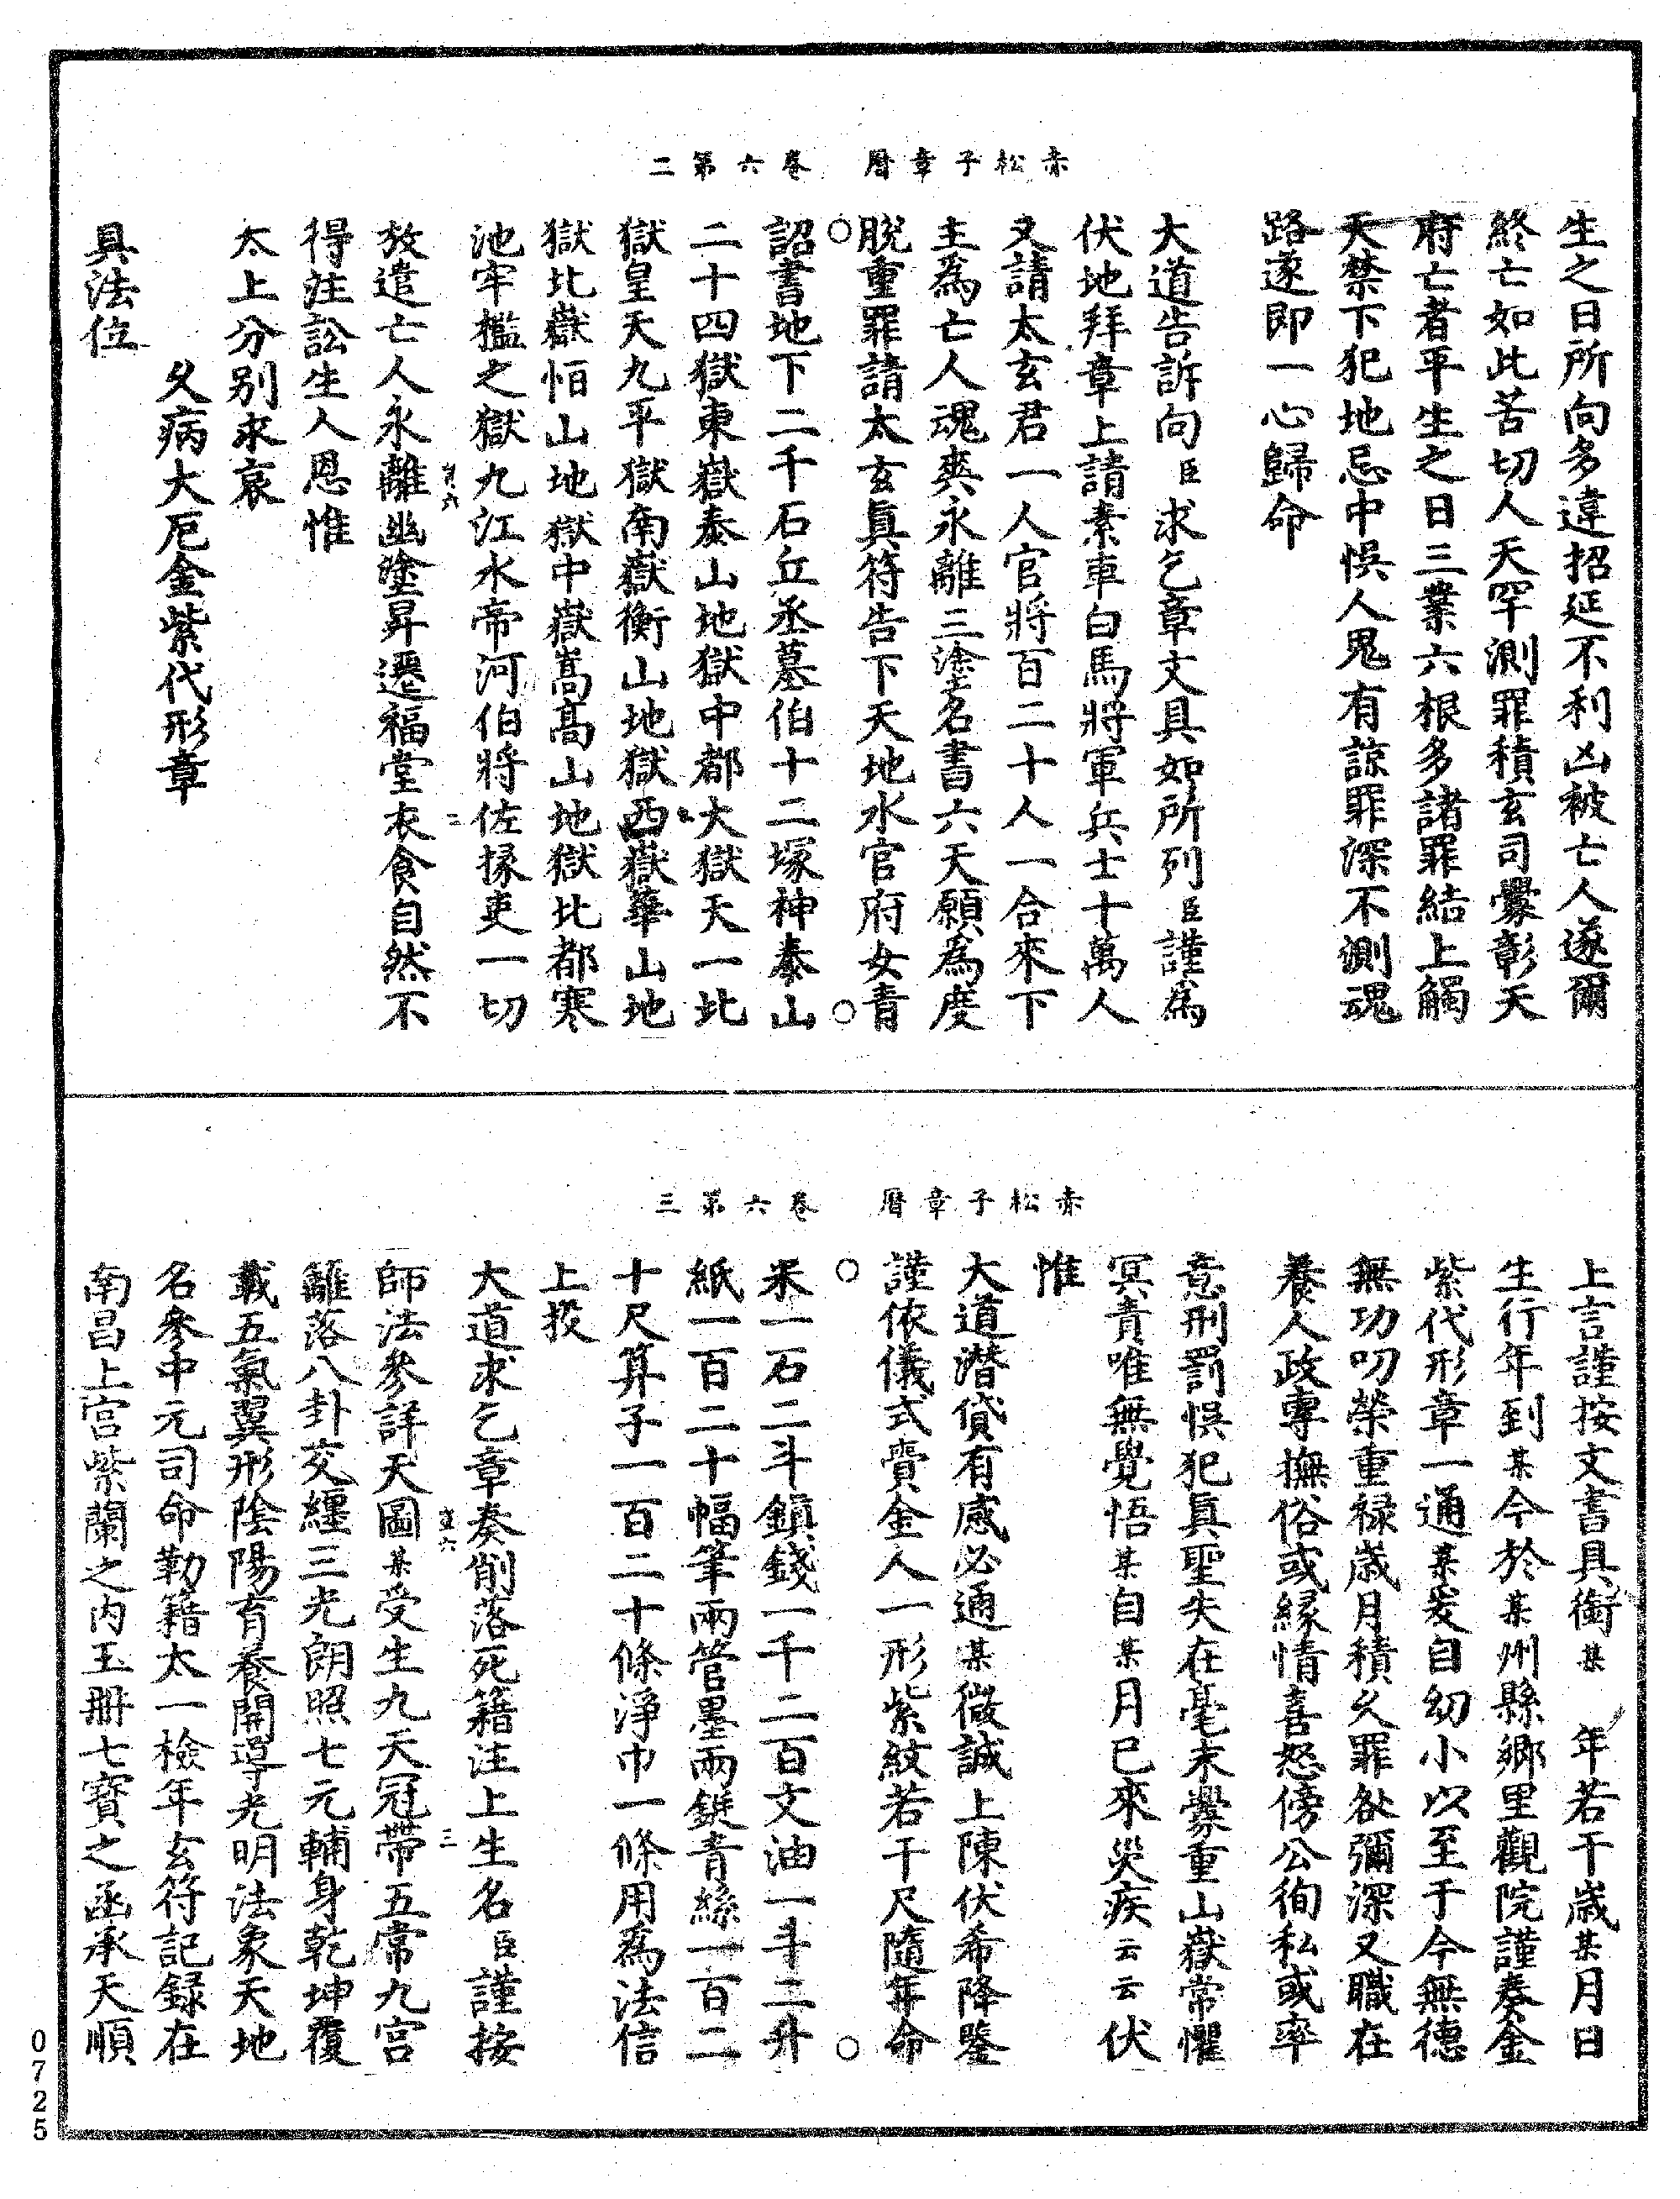 赤松子章曆　卷六第二
生之日所向多違招延不利凶被亡人遂爾
終亡如此苦切人天罕測罪積玄司釁彰天
府亡者平生之日三業六根多諸罪結上觸
天禁下犯地忌中悞人鬼有諒罪深不測魂
路遂即一心歸命
大道告訴向臣求乞章文具如所列臣謹為
伏地拜章上請素車白馬將軍兵士十萬人
又請太玄君一人官將百二十人一合來下
主為亡人魂爽永離三塗名書六天願為度
脫重罪請太玄真符告下天地水官府女青
詔書地下二千石丘丞墓伯十二塚神泰山
二十四獄東嶽泰山地獄中都大獄天一北
獄皇天九平獄南嶽衡山地獄西嶽華山地
獄北嶽恒山地獄中嶽嵩高山地獄北都寒
池牢檻之獄九江水帝河伯將佐掾吏一切
放遣亡人永離幽塗昇遷福堂衣食自然不
得注訟生人恩惟
太上分別求哀
久病大厄金紫代形章
具法位
赤松子章曆　卷六第三
上言謹按文書具銜某　年若干歲某月日
生行年到某今於某州縣鄉里觀院謹奏金
紫代形章一通某爰自幼小以至于今無德
無功叨榮重祿歲月積久罪咎彌深又職在
養人政專撫俗或緣情喜怒傍公徇私或率
意刑罰悞犯真聖失在毫末釁重山嶽常懼
冥責唯無覺悟某自某月已來災疾云云伏
惟
大道潛貸有感必通某微誠上陳伏希降鑒
謹依儀式賫金人一形紫紋若干尺隨年命
米一石二斗鎮錢一千二百文油一斗二升
紙一百二十幅筆兩管墨兩鋌青絲一百二
十尺算子一百二十條淨巾一條用為法信
上投
大道求乞章奏削落死籍注上生名臣謹按
師法參詳天圖某受生九天冠帶五常九宮
籬落八卦交纏三光朗照七元輔身乾坤覆
載五氣翼形陰陽育養開導光明法象天地
名參中元司命勒籍太一檢年玄符記錄在
南昌上宮紫蘭之內玉冊七寶之函承天順
0725